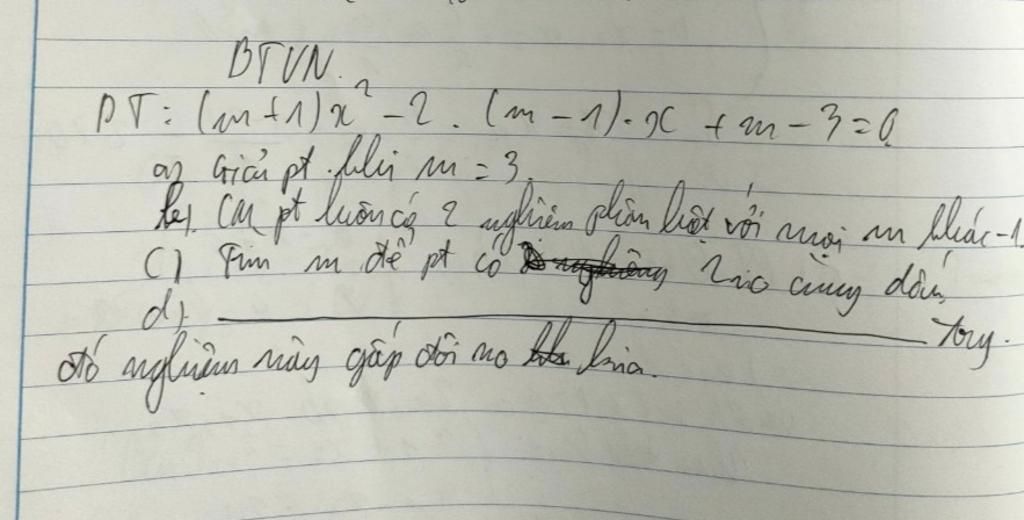 BTVN.
PT: (m+1)x² - 2.(m-1).x + m-3=0
a) Giải pt khi m = 3.
b). CM pt luôn có 2 nghiệm phân biệt với mọi m khác -1.
c) Tìm m để pt có 2no cùng dấu
d). trg.
đó nghiệm này gấp đôi no kia.